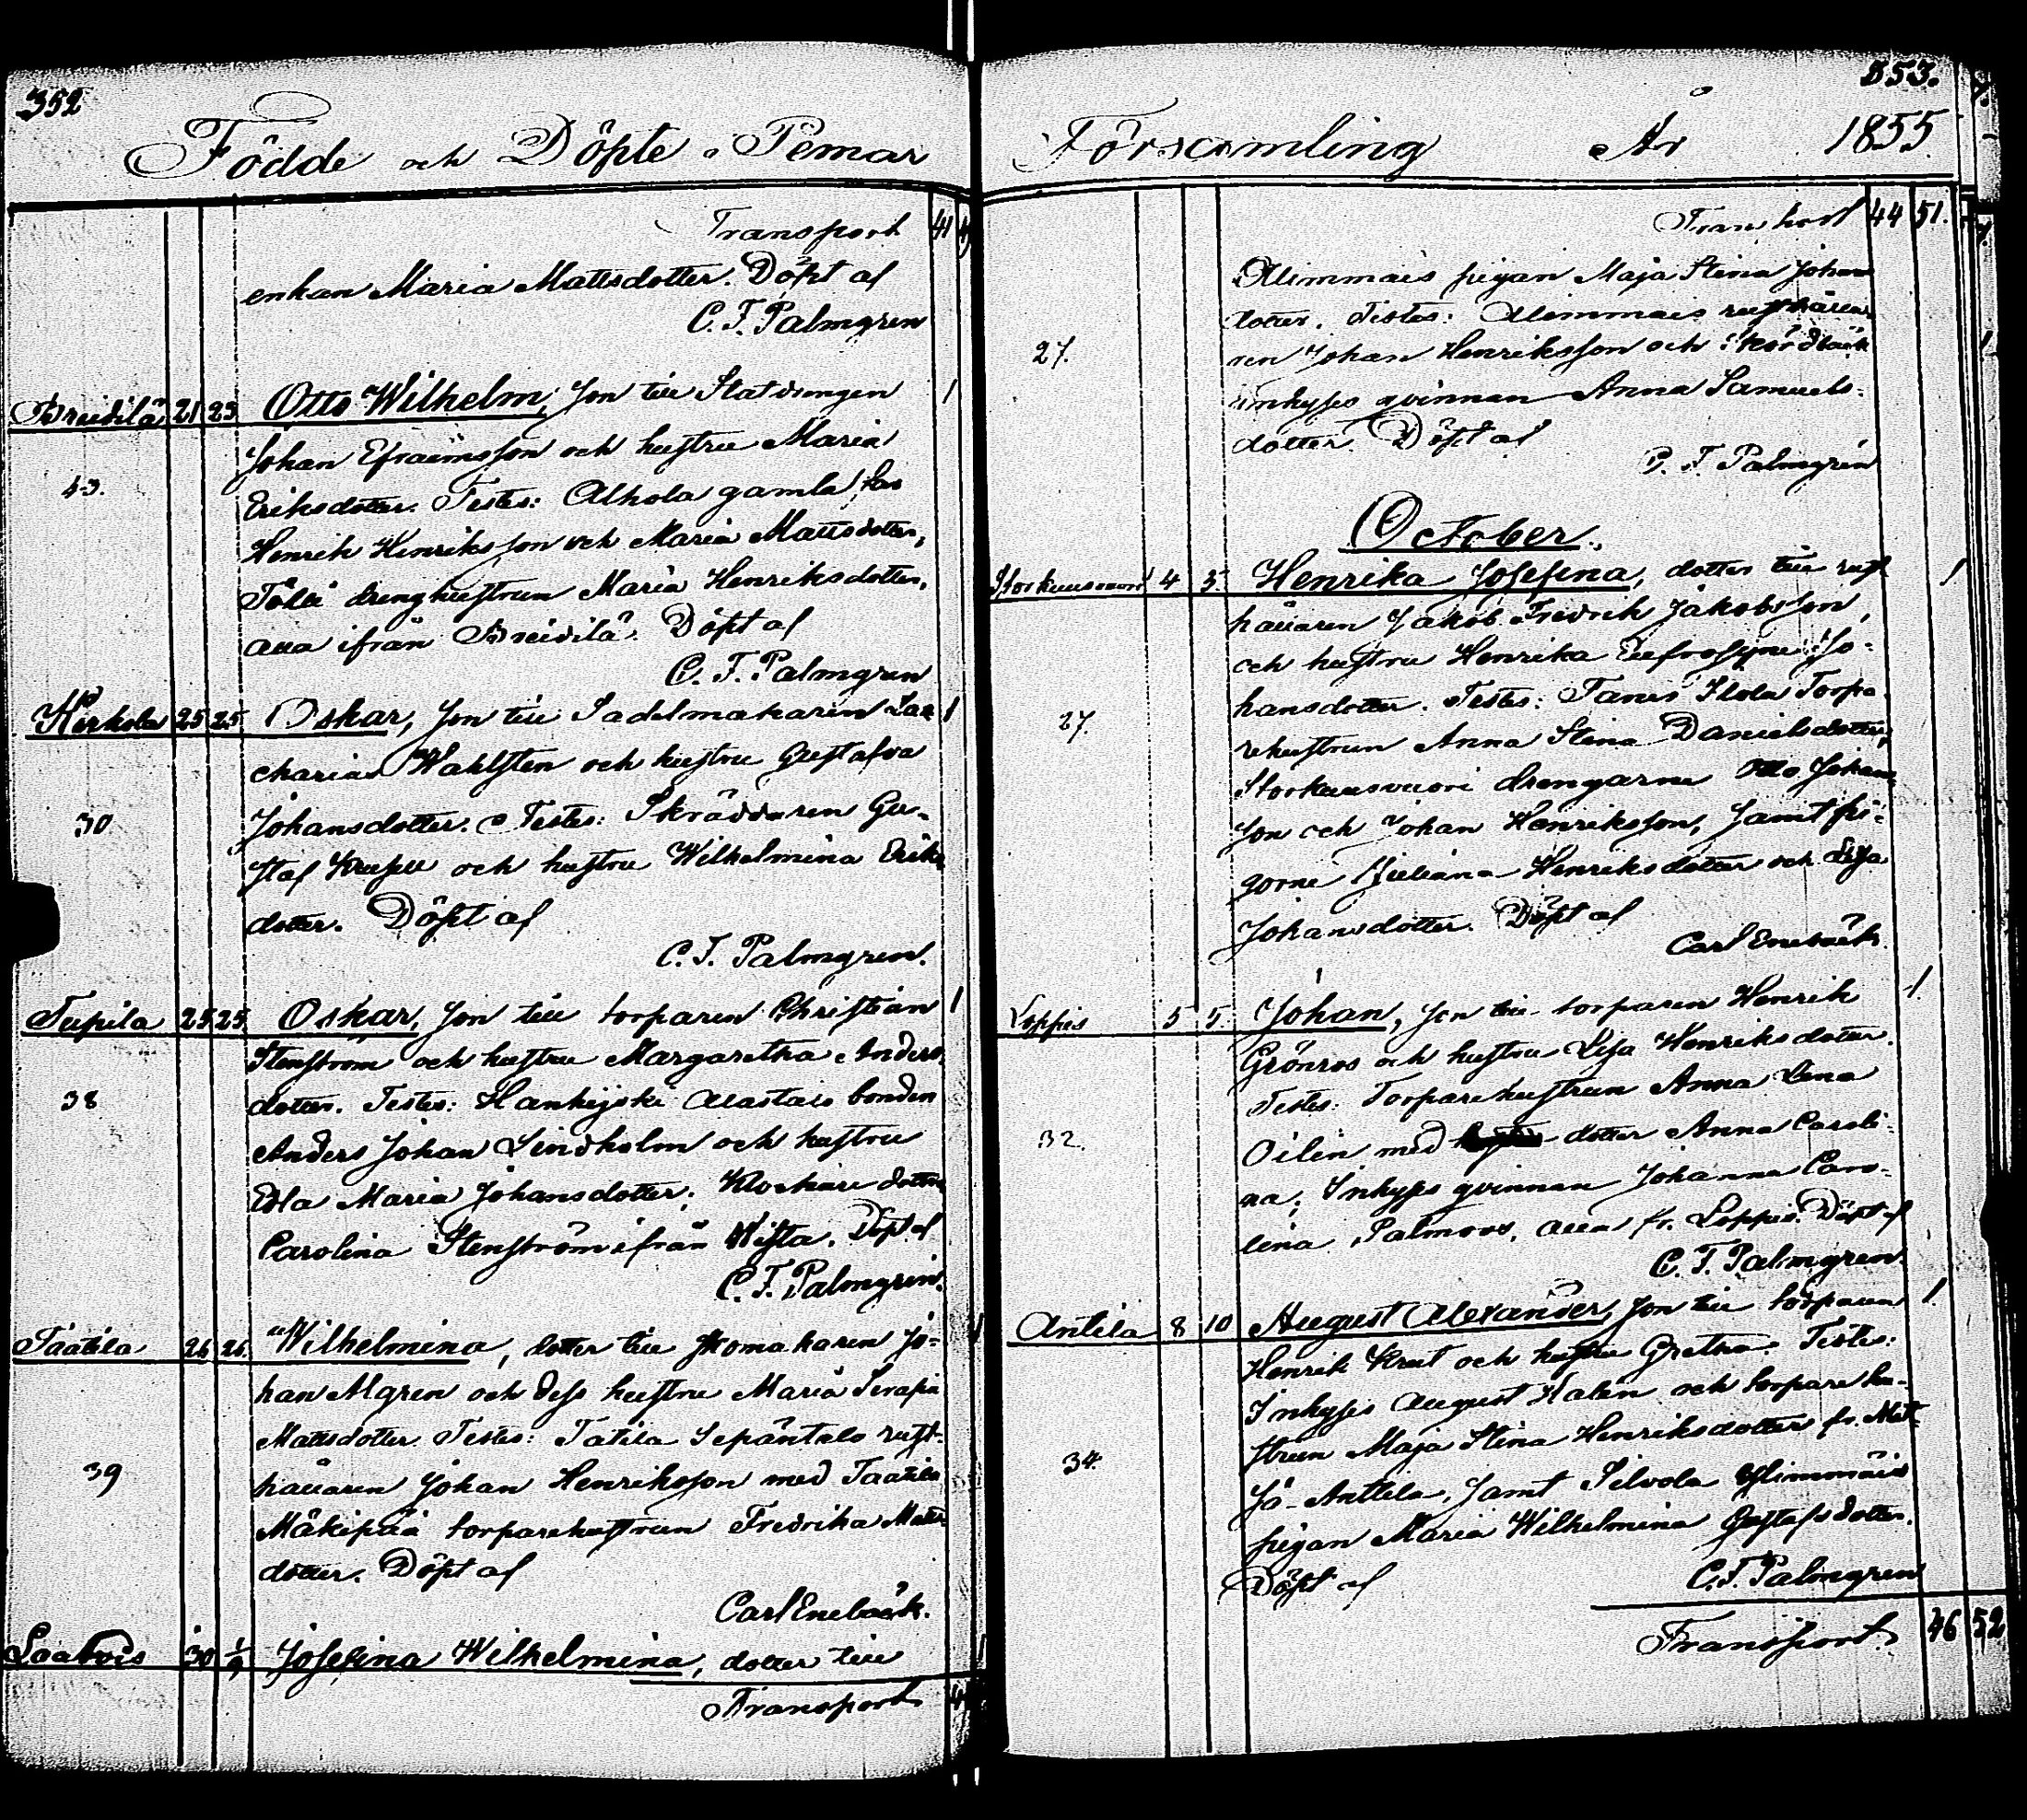 352
Födde och Döpte i Pemar
Transport 41
enkan Maria Mattsdotter. Döpt af
C. F. Palmgren
21 23 Otto Wilhelm, son till Statdrengen 1
Johan Efraimsson och hustru Maria
43.
Eriksdotter. Testes: Alhola gamla
Henrik Henriksson och Maria Mattsdotter,
drenghustrun Maria Henriksdotter,
alla ifrån Döpt af
C. F. Palmgren
Kirkola 25 25 Oskar, son till Sadelmakaren Za- 1
charias Wahlsten och hustru Gustafva
Johansdotter. Testes: Skräddaren Gu-
30
staf och hustru Wilhelmina Eriks
dotter. Döpt af
C. F. Palmgren.
Tupila 25 25 Oskar, son till torparen Christian 1
Stenström och hustru Margaretha Anders
dotter. Testes: Alastalo bonden
38
Anders Johan Lindholm och hustru
Edla Maria Johansdotter, Klockare dottren
Carolina Stenström ifrån Wista. Döpt af
C. F. Palmgren.
Taatila 26 26. Wilhelmina, dotter till skomakaren Jo-
han Algren och dess hustru Maria Serafia
Mattsdotter. Testes: Tatila Sepäntalo rust-
hållaren Johan Henriksson med Taatila
39
Mäkipää torparehustrun Fredrika Matts
dotter. Döpt af
Carl Enebäck.
30 1/9 Josefina Wilhelmina, dotter till
Transport
353.
Församling År 1855
Transport 44 51.
Alimmais pigan Maja Stina Johans
dotter. Testes: Alimmais rusthålla
ren Johan Henriksson och
27.
inhyses qvinnan Anna Samuels-
dotter. Döpt af
C. F. Palmgren
October.
Storkuusvuori 4 5 Henrika Josefina, dotter till rust 1
hållaren Jakob Fredrik Jakobsson,
och hustru Henrika Eufrosyne Jo-
hansdotter. Testes: Ilola Torpa-
27.
rehustrun Anna Stina Danielsdotter,
Storkuusvuori drengarne Otto Johans
son och Johan Henriksson, samt pi-
gorne Juliana Henriksdotter och Lisa
Johansdotter. Döpt af
Carl Enebäck.
Loppis 5 5. Johan, son till torparen Henrik 1.
Grönros och hustru Lisa Henriksdotter.
Testes: Torparehustrun Anna Lena
32.
Oilin med dotter Anna Caroli-
na, Inhyses qvinnan Johanna Caro-
lina Palmroos, alla fr. Loppis. Döpt af
C. F. Palmgren.
Antila 8 10 August Alexander, son till torparen 1.
Henrik Krut och hustru Gretha. Testes:
Inhyses August Halin och torpare hu-
strun Maja Stina Henriksdotter fr.
34.
Anttila, samt Silvola Ylimmäis
pigan Maria Wilhelmina Gustafsdotter.
Döpt af C. F. Palmgren
Transport 46 52